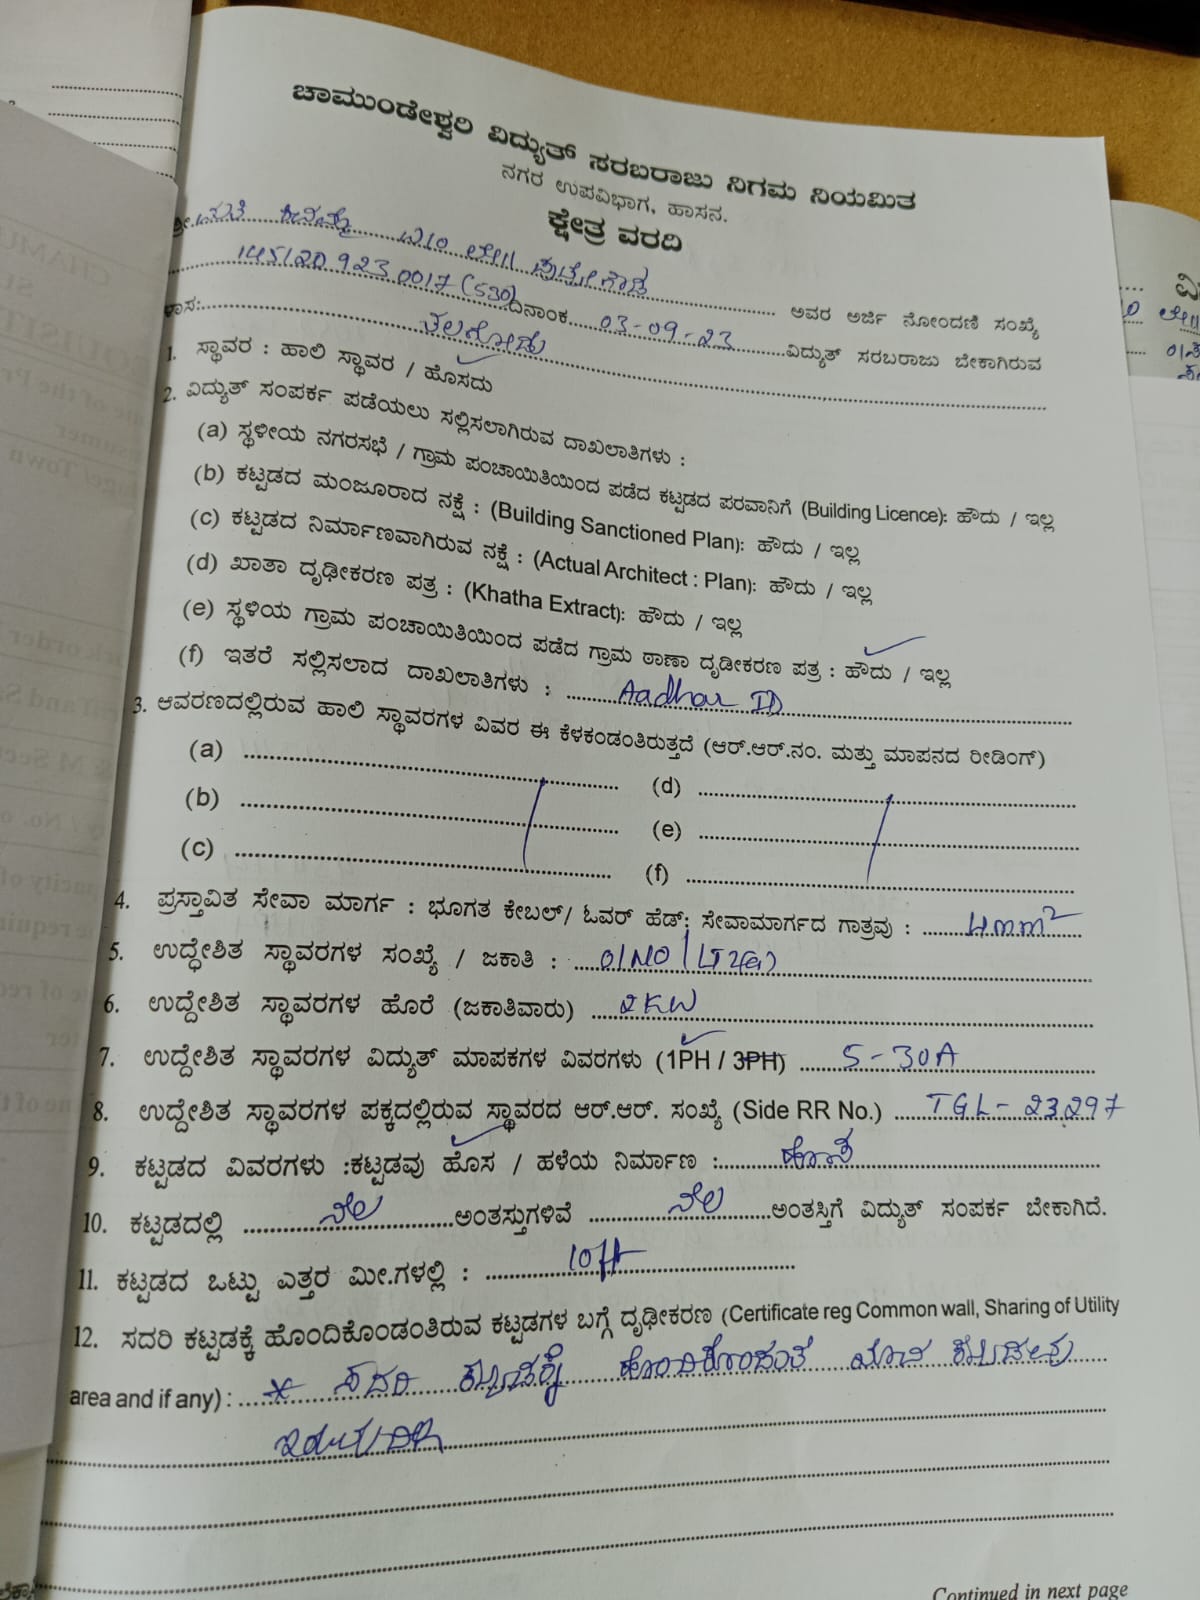 ಚಾಮುಂಡೇಶ್ವರಿ ವಿದ್ಯುತ್ ಸರಬರಾಜು ನಿಗಮ ನಿಯಮಿತ
ನಗರ ಉಪವಿಭಾಗ, ಹಾಸನ.
ಕ್ಷೇತ್ರ ವರದಿ
ಶ್ರೀ. ಲೇ|| ಪುಟ್ಟೇಗೌಡ ಅವರ ಅರ್ಜಿ ನೋಂದಣಿ ಸಂಖ್ಯೆ
145120 923 0017 (530) ದಿನಾಂಕ 03-09-23 ವಿದ್ಯುತ್ ಸರಬರಾಜು ಬೇಕಾಗಿರುವ
1. ಸ್ಥಾವರ : ಹಾಲಿ ಸ್ಥಾವರ / ಹೊಸದು
2. ವಿದ್ಯುತ್ ಸಂಪರ್ಕ ಪಡೆಯಲು ಸಲ್ಲಿಸಲಾಗಿರುವ ದಾಖಲಾತಿಗಳು :
(a) ಸ್ಥಳೀಯ ನಗರಸಭೆ / ಗ್ರಾಮ ಪಂಚಾಯಿತಿಯಿಂದ ಪಡೆದ ಕಟ್ಟಡದ ಪರವಾನಿಗೆ (Building Licence): ಹೌದು / ಇಲ್ಲ
(b) ಕಟ್ಟಡದ ಮಂಜೂರಾದ ನಕ್ಷೆ : (Building Sanctioned Plan): ಹೌದು / ಇಲ್ಲ
(c) ಕಟ್ಟಡದ ನಿರ್ಮಾಣವಾಗಿರುವ ನಕ್ಷೆ : (Actual Architect : Plan): ಹೌದು / ಇಲ್ಲ
(d) ಖಾತಾ ದೃಢೀಕರಣ ಪತ್ರ : (Khatha Extract): ಹೌದು / ಇಲ್ಲ
(e) ಸ್ಥಳಿಯ ಗ್ರಾಮ ಪಂಚಾಯಿತಿಯಿಂದ ಪಡೆದ ಗ್ರಾಮ ಠಾಣಾ ದೃಢೀಕರಣ ಪತ್ರ : ಹೌದು / ಇಲ್ಲ
(f) ಇತರೆ ಸಲ್ಲಿಸಲಾದ ದಾಖಲಾತಿಗಳು : Aadhar ID
3. ಆವರಣದಲ್ಲಿರುವ ಹಾಲಿ ಸ್ಥಾವರಗಳ ವಿವರ ಈ ಕೆಳಕಂಡಂತಿರುತ್ತದೆ (ಆರ್.ಆರ್.ನಂ. ಮತ್ತು ಮಾಪನದ ರೀಡಿಂಗ್)
(a) (d)
(b) (e)
(c) (f)
4. ಪ್ರಸ್ತಾವಿತ ಸೇವಾ ಮಾರ್ಗ : ಭೂಗತ ಕೇಬಲ್/ ಓವರ್ ಹೆಡ್; ಸೇವಾಮಾರ್ಗದ ಗಾತ್ರವು : 4mm²
5. ಉದ್ಧೇಶಿತ ಸ್ಥಾವರಗಳ ಸಂಖ್ಯೆ / ಜಕಾತಿ : 01NO / LT2(a)
6. ಉದ್ದೇಶಿತ ಸ್ಥಾವರಗಳ ಹೊರೆ (ಜಕಾತಿವಾರು) 2KW
7. ಉದ್ದೇಶಿತ ಸ್ಥಾವರಗಳ ವಿದ್ಯುತ್ ಮಾಪಕಗಳ ವಿವರಗಳು (1PH / 3PH) 5-30A
8. ಉದ್ದೇಶಿತ ಸ್ಥಾವರಗಳ ಪಕ್ಕದಲ್ಲಿರುವ ಸ್ಥಾವರದ ಆರ್.ಆರ್. ಸಂಖ್ಯೆ (Side RR No.) TGL-23297
9. ಕಟ್ಟಡದ ವಿವರಗಳು :ಕಟ್ಟಡವು ಹೊಸ / ಹಳೆಯ ನಿರ್ಮಾಣ : ಹೊಸ
10. ಕಟ್ಟಡದಲ್ಲಿ ನೆಲ ಅಂತಸ್ತುಗಳಿವೆ ನೆಲ ಅಂತಸ್ತಿಗೆ ವಿದ್ಯುತ್ ಸಂಪರ್ಕ ಬೇಕಾಗಿದೆ.
11. ಕಟ್ಟಡದ ಒಟ್ಟು ಎತ್ತರ ಮೀ.ಗಳಲ್ಲಿ : 10ft
12. ಸದರಿ ಕಟ್ಟಡಕ್ಕೆ ಹೊಂದಿಕೊಂಡಂತಿರುವ ಕಟ್ಟಡಗಳ ಬಗ್ಗೆ ದೃಢೀಕರಣ (Certificate reg Common wall, Sharing of Utility
area and if any) : * ಸದರಿ ಕಟ್ಟಡಕ್ಕೆ ಹೊಂದಿಕೊಂಡಂತೆ
Continued in next page